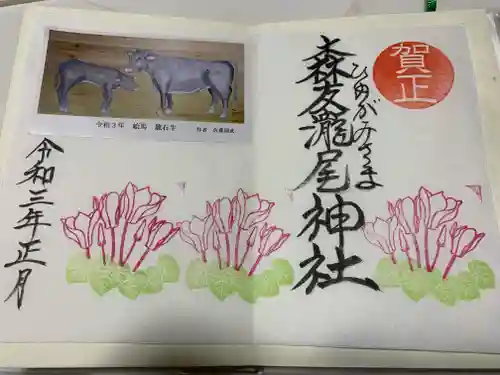 賀正
森友瀧尾神社
ひめがみさま
令和3年 絵馬 龍石牛
令和三年正月